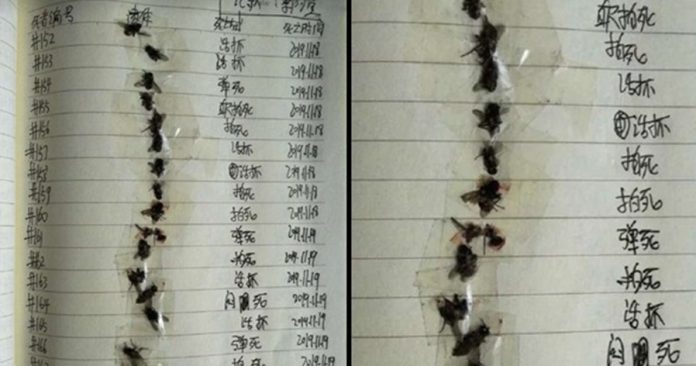 死者编号 遗体 死亡时间
#152 活抓 2019.11.18
#153 活抓 2019.11.18
#154 弹死 2019.11.18
#155 拍死 2019.11.18
#156 拍死 2019.11.18
#157 活抓 2019.11.18
#158 活抓 2019.11.18
#159 拍死 2019.11.18
#160 拍死 2019.11.18
#161 弹死 2019.11.19
#162 拍死 2019.11.19
#163 活抓 2019.11.19
#164 闷死 2019.11.19
#165 活抓 2019.11.19
#166 弹死 2019.11.19
拍死 2019.11.19
拍死
拍死
活抓
活抓
拍死
拍死
弹死
拍死
活抓
闷死